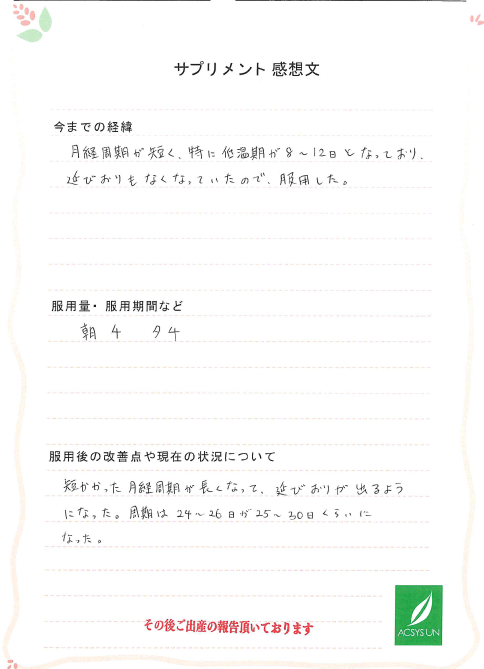 サプリメント 感想文
今までの経緯
月経周期が短く、特に低温期が8〜12日となっており、
延びおりもなくなっていたので、服用した。
服用量・服用期間など
朝 4 夕4
服用後の改善点や現在の状況について
短かかった月経周期が長くなって、延びおりが出るよう
になった。周期は24〜26日が25〜30日くらいに
なった。
その後ご出産の報告頂いております
ACSYSUN